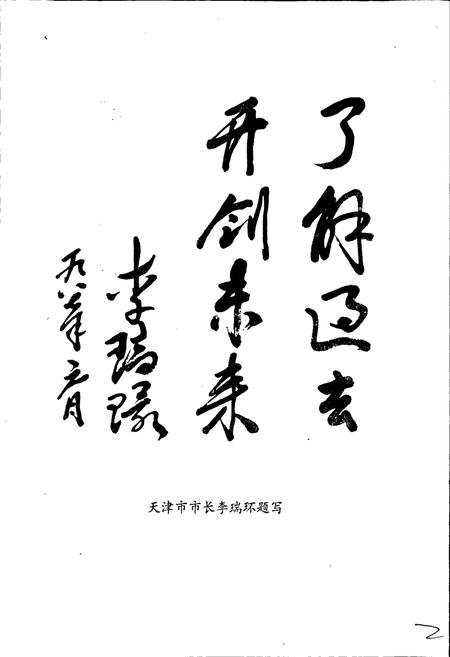 了解过去
开创未来
李瑞環
一九八七年元月
天津市市长李瑞环题写
2